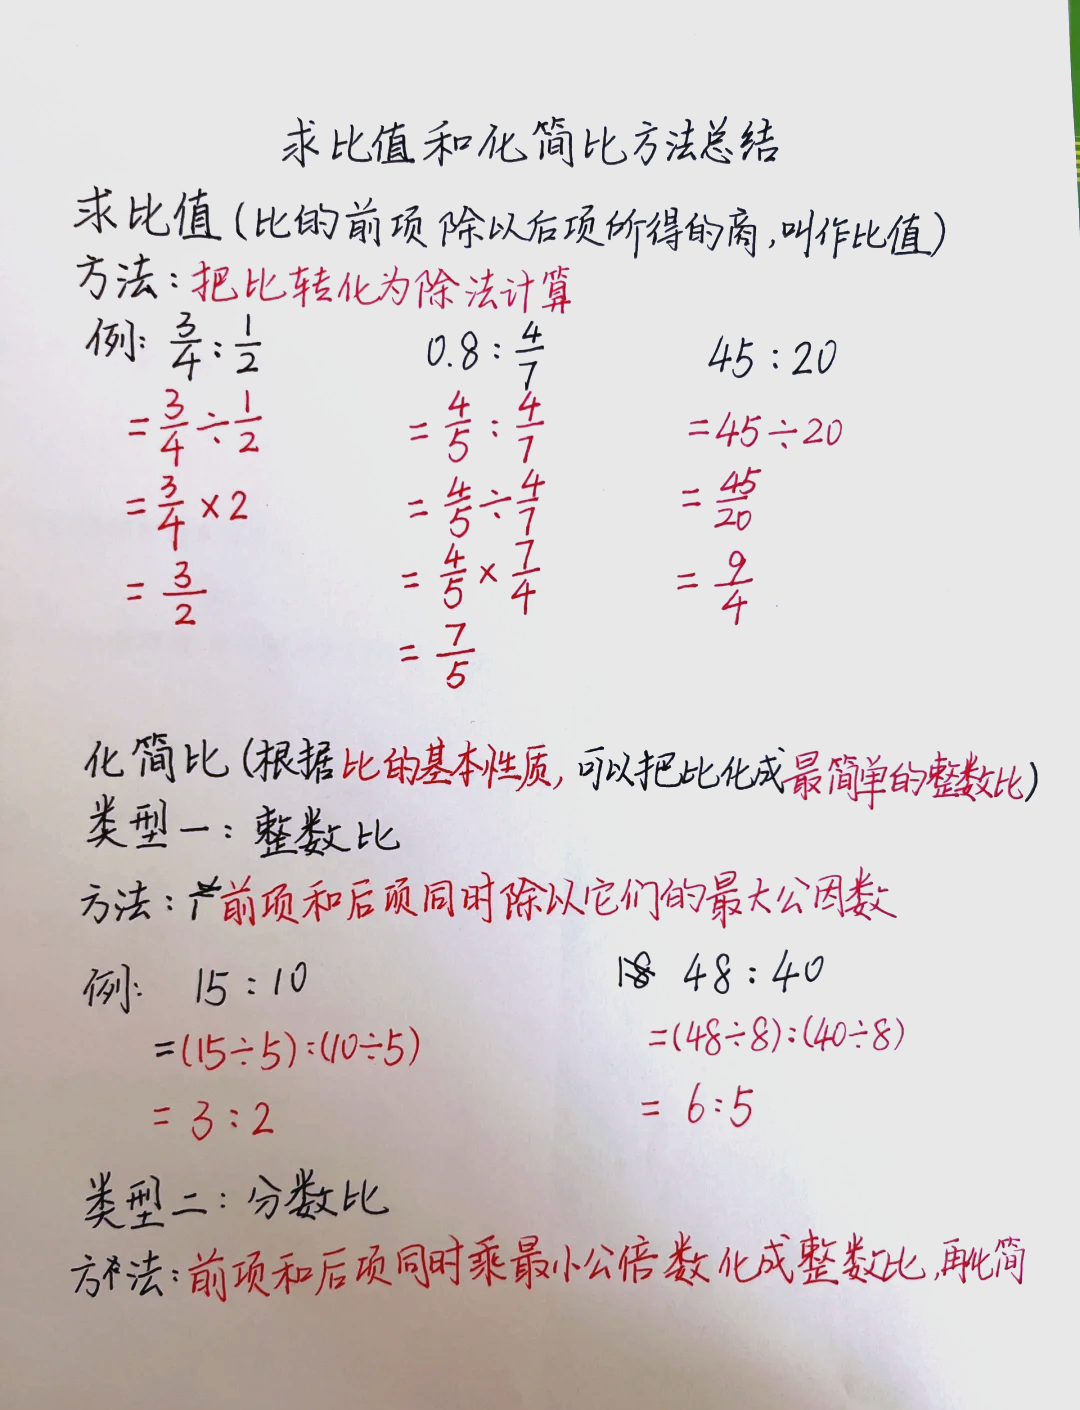 求比值和化简比方法总结
求比值(比的前项除以后项所得的商,叫作比值)
方法:把比转化为除法计算
例: 3/4 : 1/2    0.8 : 4/7    45 : 20
= 3/4 ÷ 1/2    = 4/5 : 4/7    = 45÷20
= 3/4 × 2    = 4/5 ÷ 4/7    = 45/20
= 3/2    = 4/5 × 7/4    = 9/4
= 7/5
化简比(根据比的基本性质,可以把比化成最简单的整数比)
类型一:整数比
方法:前项和后项同时除以它们的最大公因数
例: 15 : 10    48 : 40
=(15÷5):(10÷5)    =(48÷8):(40÷8)
= 3 : 2    = 6:5
类型二:分数比
方法:前项和后项同时乘最小公倍数化成整数比,再化简